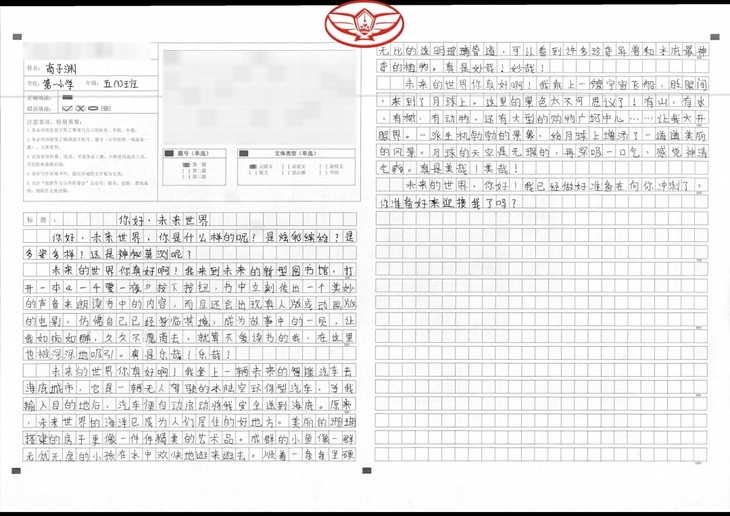 姓名：商子渊
学校：第一小学 年级：五(1)班
正确填涂：
错误填涂：
注意事项，特别重要：
题号（单选）
文体类型（单选）
第一题
第二题
第三题
记叙文
说明文
议论文
散文
读后感
书信
标题：你好，未来世界
你好，未来世界，你是什么样的呢？是炫彩缤纷？是
多姿多样？还是神秘莫测呢？
未来的世界你真好啊！我来到未来的新型图书馆，打
开一本《一千零一夜》按下按钮，书中立刻传出一个美妙
的声音来朗读书中的内容，而且还会出现真人版或动画版
的电影，仿佛自己已经身临其境，成为故事中的一员，让
我如痴如醉，久久不愿离去，就算不爱读书的我，在这里
也被深深地吸引。真是乐哉！乐哉！
未来的世界你真好啊！我坐上一辆未来的智能汽车去
海底城市，它是一辆无人驾驶的水陆空环保型汽车，当我
输入目的地后，汽车便自动启动将我安全送到海底。原来
，未来世界的海洋已成为人们居住的好地方。美丽的珊瑚
搭建的房子更像一件件精美的艺术品。成群的小鱼像一群
无忧无虑的小孩在水中欢快地游来游去。顺着一条条坚硬
无比的透明玻璃管道，可以看到许多珍奇异兽和水底最神
奇的植物。真是妙哉！妙哉！
未来的世界你真好啊！我乘上一艘宇宙飞船，眨眼间
，来到了月球上。这里的景色太不可思议了！有山，有水
，有树，有动物，还有大型的购物广场中心……让我大开
眼界。一派生机勃勃的景象，给月球上增添了一道道美丽
的风景。月球的天空是无瑕的，再深吸一口气，感觉神清
气爽。真是美哉！美哉！
未来的世界，你好！我已经做好准备在向你冲刺了，
你准备好来迎接我了吗？